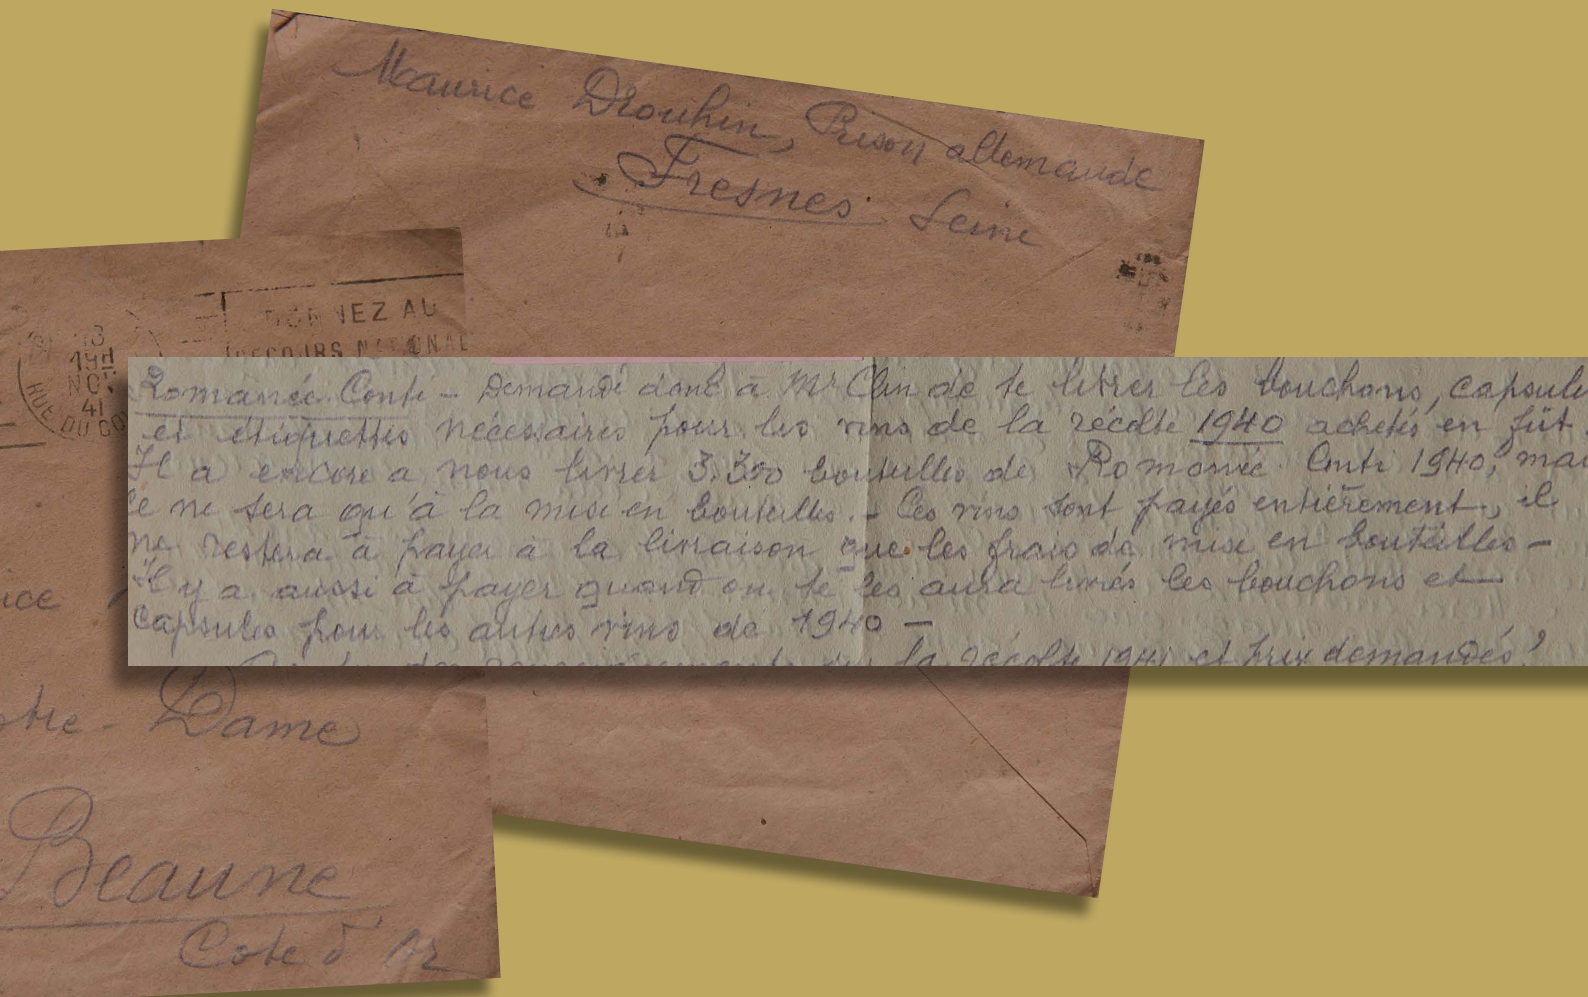 Maurice Drouhin, Prison allemande
Fresnes Seine
DONNEZ AU
SECOURS NATIONAL
18
19H
NO
41
RUE DU
Romanée Conti - Demande donc à Mr Clin de te livrer les bouchons, capsule
et étiquettes nécessaires pour les vins de la récolte 1940 achetés en fût.
Il a encore a nous livrer 3.300 bouteilles de Romanée Conti 1940, mai
ce ne sera qu'à la mise en bouteilles. - Ces vins sont payés entièrement, il
ne restera à payer à la livraison que les frais de mise en bouteilles -
Il y a aussi à payer quand on te les aura livrés les bouchons et
capsules pour les autres vins de 1940 -
la récolte 1941 et prix demandés?
ice
otre-Dame
Beaune
Cote d'Or